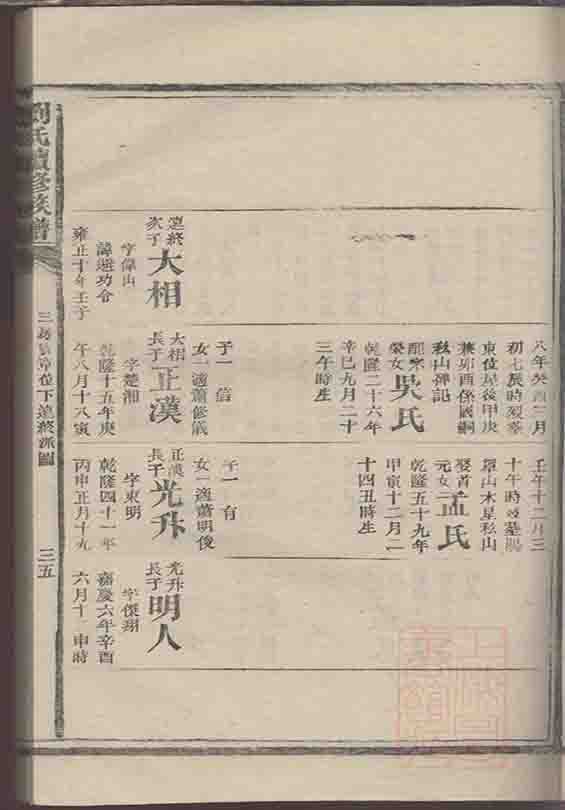 八年癸酉三月
初七辰時歿葬
東位屋後甲庚
兼卯酉係國嗣
私山碑記
配家榮女吳氏
乾隆二十六年
辛巳九月二十
三午時生
子一 信
女一適蕭修儀
壬年十二月三
十午時歿墓賜
羅山木星私山
娶首元女孟氏
乾隆五十九年
甲寅十二月二
十四丑時生
子一 有
女一適蕭明俊
次子大相
字偉山
諱遊功令
雍正十年壬子
大相長子正漢
字楚湘
乾隆十五年庚
午八月十八寅
正漢長子光升
字東明
乾隆四十一年
丙申正月十九
光升長子明人
字傑翔
嘉慶六年辛酉
六月十一申時
劉氏續修族譜
三五